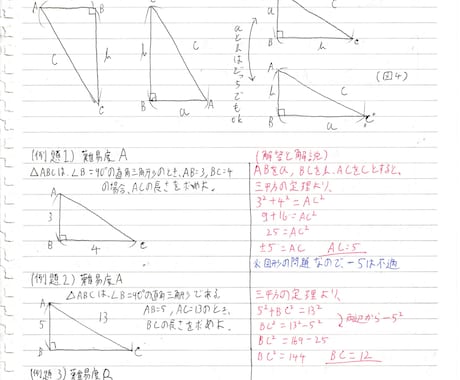 A B
C h
C
A
C h
B a A
aとhはどっちでもok
B h C
A
h C
B a C
(図4)
(例題1) 難易度 A
△ABCは、∠B=90°の直角三角形のとき、AB=3, BC=4
の場合、ACの長さを求めよ。
A
3
B 4 C
(解答と解説)
ABをa, BCをh, ACをCとすると、
三平方の定理より、
3²+4²=AC²
9+16=AC²
25=AC²
±5=AC AC=5
※図形の問題なので、-5は不適
(例題2) 難易度A
△ABCは∠B=90°の直角三角形である
AB=5, AC=13のとき、
BCの長さを求めよ。
A
5 13
B C
三平方の定理より、
5²+BC²=13²
BC²=13²-5²
両辺から-5²
BC²=169-25
BC²=144 BC=12
(例題3) 難易度B